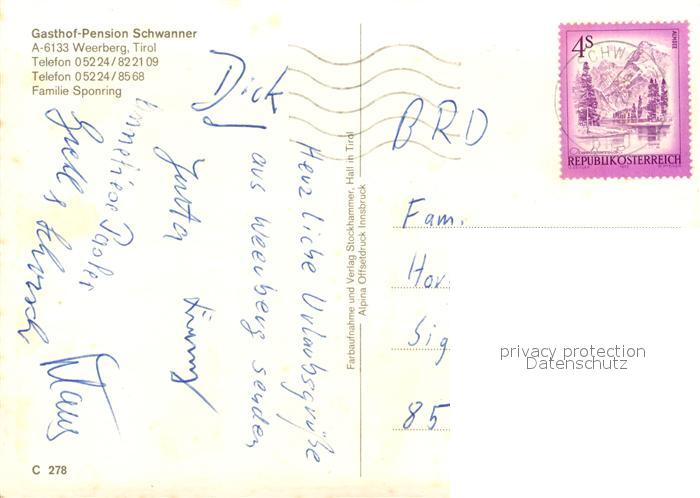 Gasthof-Pension Schwanner
A-6133 Weerberg, Tirol
Telefon 05224/822109
Telefon 05224/8568
Familie Sponring
Herzliche Urlaubsgrüße
aus Weerberg senden
Dick
Jutta
Hannelriese
Klaus
C 278
Farbaufnahme und Verlag Stockhammer, Hall in Tirol
Alpina Offsetdruck Innsbruck
4S
ALMSEE
REPUBLIK ÖSTERREICH
SCHW
BRD
Fam.
Hor
Sig
85
privacy protection
Datenschutz